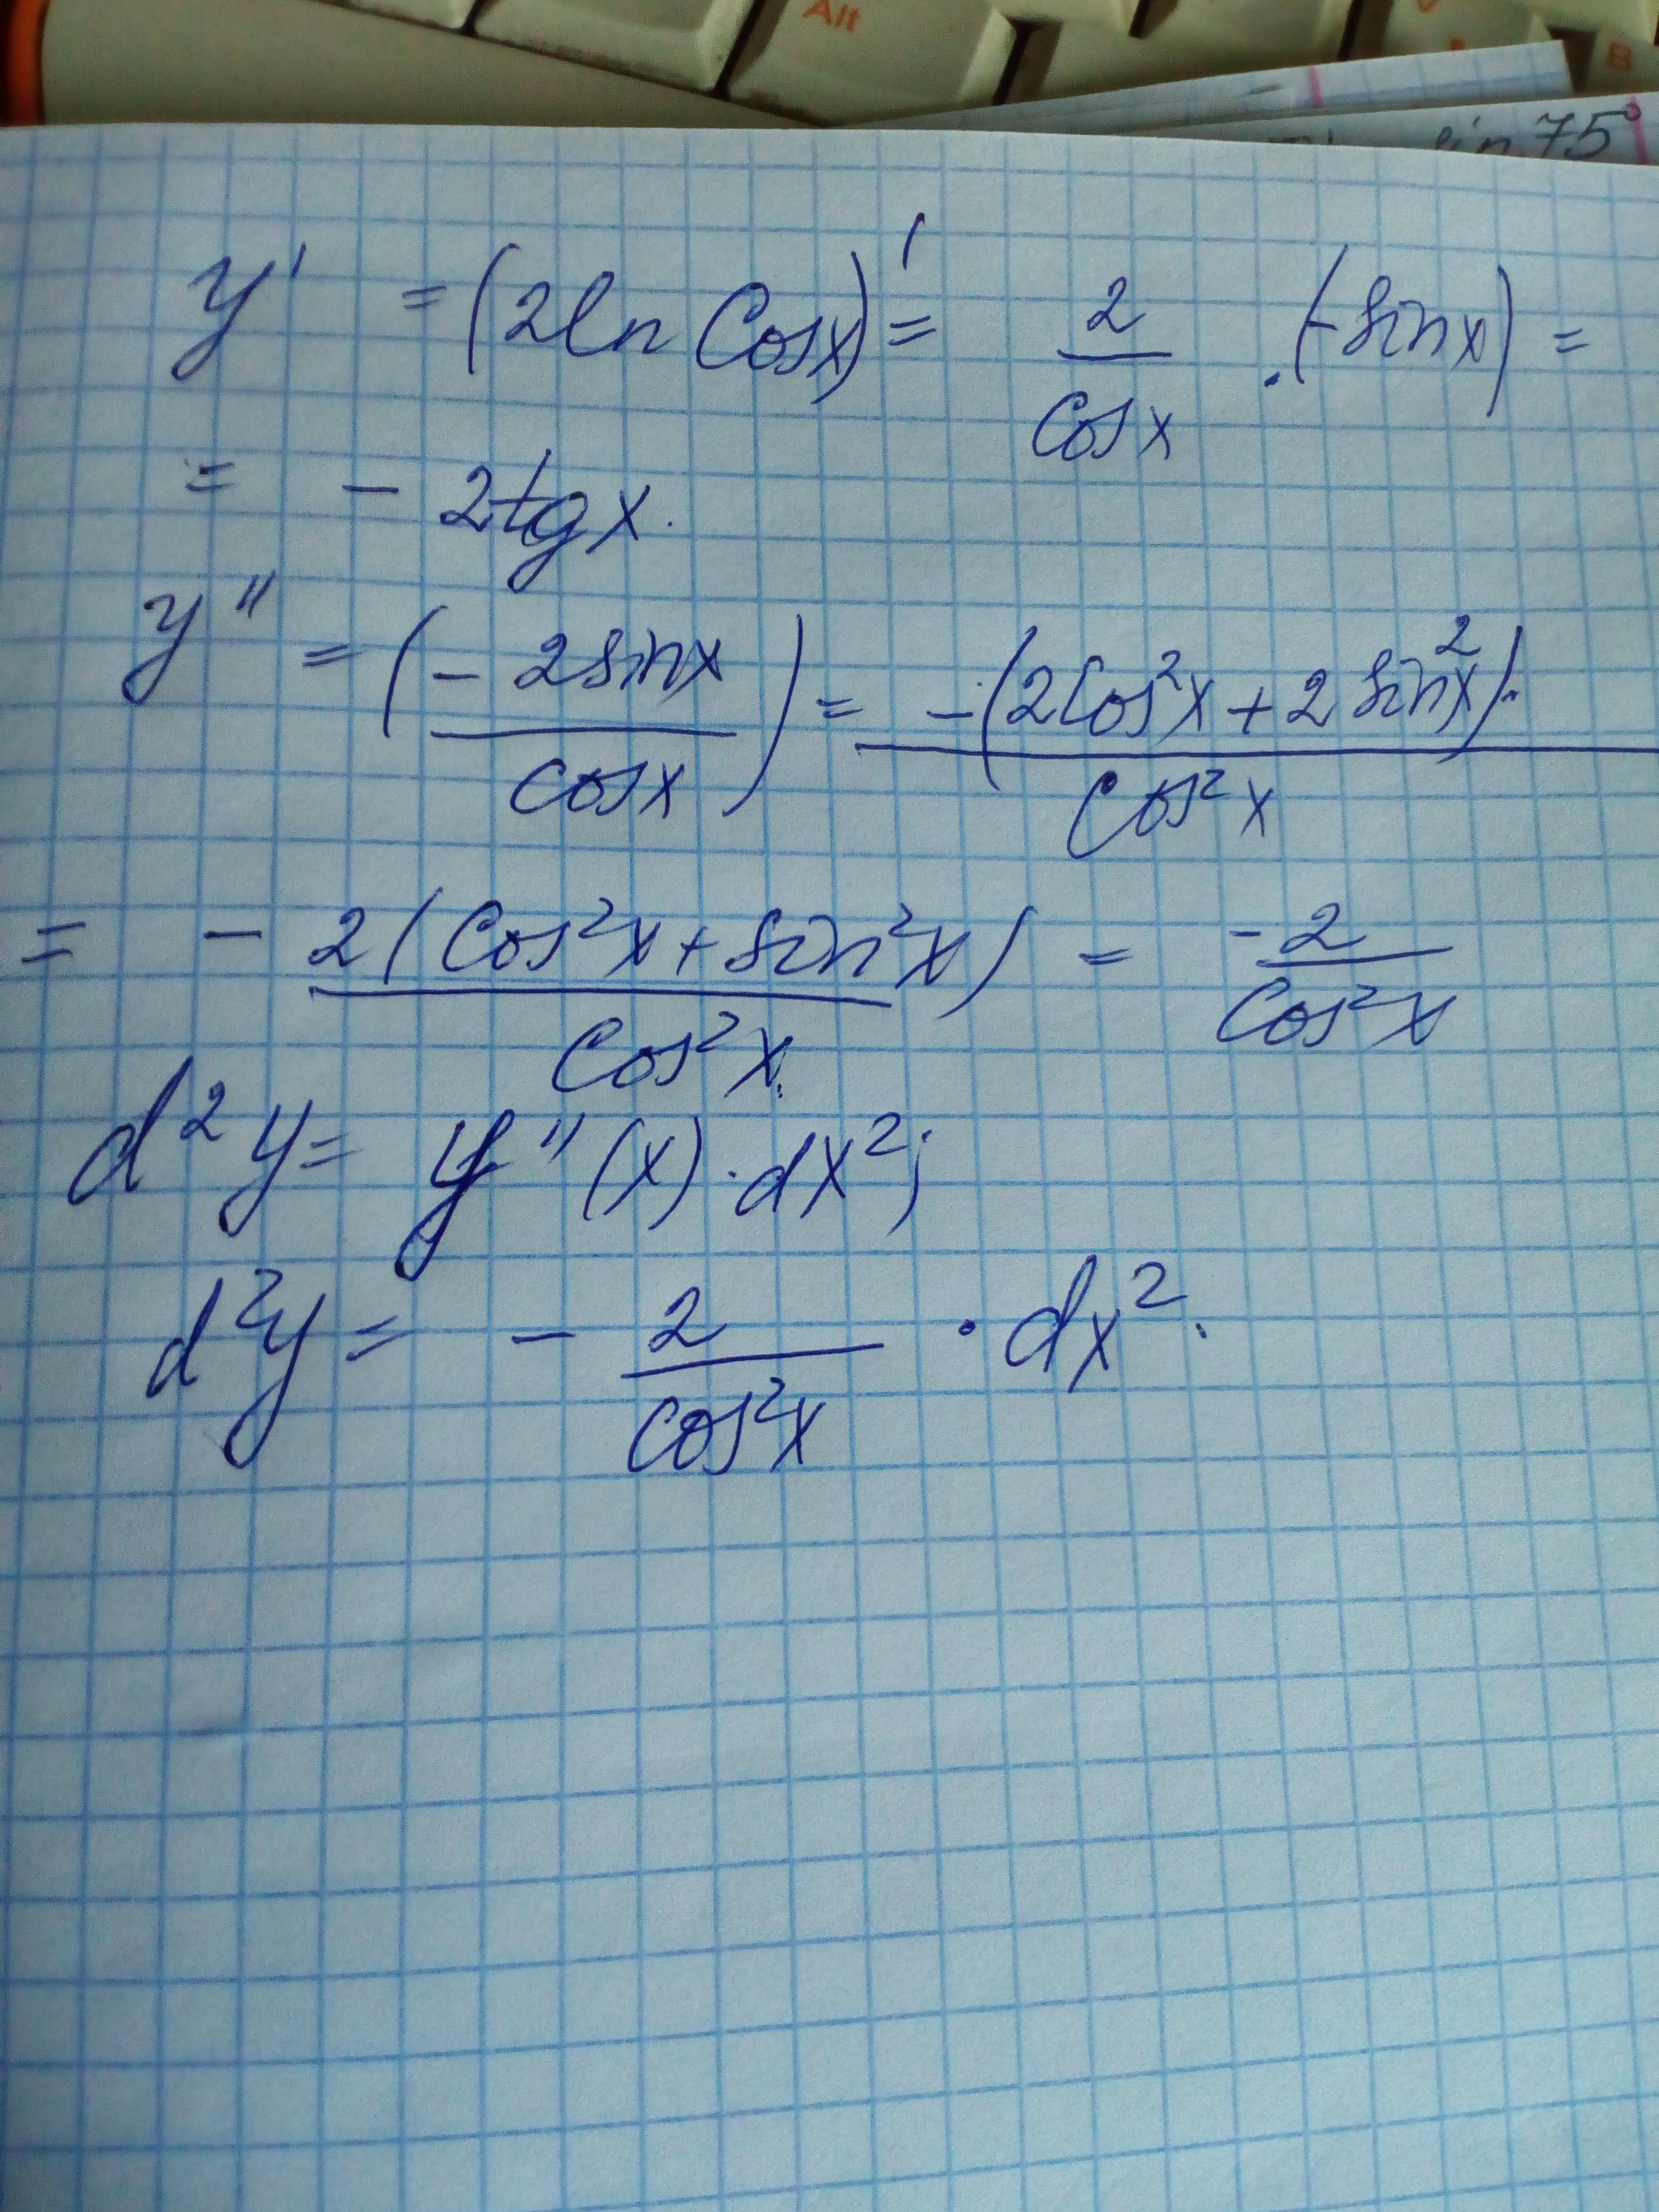 Alt
B
sin 75°
y' = (2ln Cosx)' = 2/Cosx · (-sinx) =
= - 2tgx.
y'' = (- 2sinx/cosx) = -(2Cos²x + 2sin²x)/Cos²x
= - 2(Cos²x + sin²x)/Cos²x = -2/Cos²x
d²y = y''(x)·dx²;
d²y = - 2/cos²x · dx².